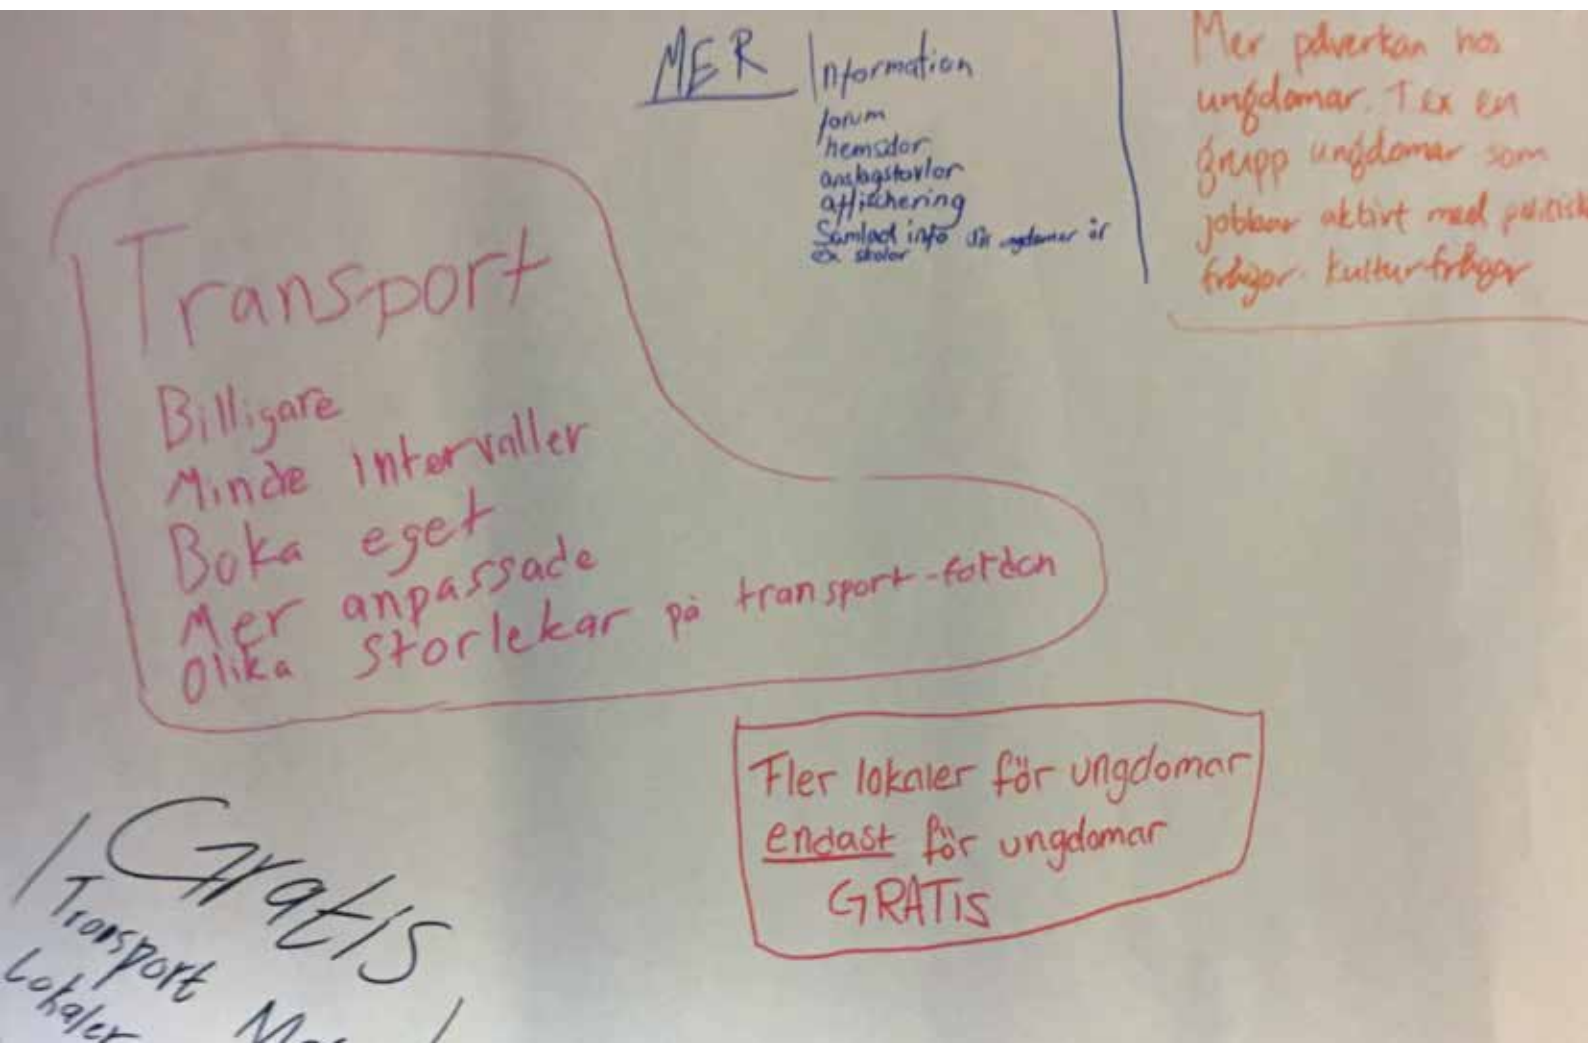 MER Information
forum
hemsidor
anslagstavlor
affischering
Samlad info där ungdomar är
ex skolor
Mer påverkan hos
ungdomar. T ex en
grupp ungdomar som
jobbar aktivt med politisk
frågor. kulturfrågor
Transport
Billigare
Minde intervaller
Boka eget
Mer anpassade
Olika storlekar på transport-fordon
Fler lokaler för ungdomar
endast för ungdomar
GRATIS
Gratis
Transport
Lokaler